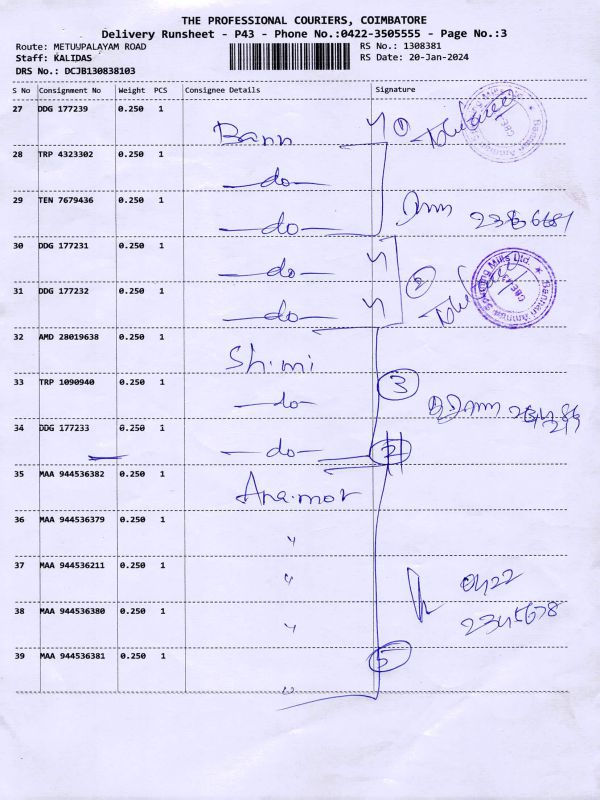 THE PROFESSIONAL COURIERS, COIMBATORE
Delivery Runsheet - P43 - Phone No.:0422-3505555 - Page No.:3
Route: METUUPALAYAM ROAD RS No.: 1308381
Staff: KALIDAS RS Date: 20-Jan-2024
DRS No.: DCJB130838103
S No Consignment No Weight PCS Consignee Details Signature
27 DDG 177239 0.250 1 Bann 1
28 TRP 4323302 0.250 1 -do-
29 TEN 7679436 0.250 1 -do-
30 DDG 177231 0.250 1 -do- 2
31 DDG 177232 0.250 1 -do-
32 AMD 28019638 0.250 1 Shimi
33 TRP 1090940 0.250 1 -do- 3
34 DDG 177233 0.250 1 -do-
35 MAA 944536382 0.250 1 Ana.mor
36 MAA 944536379 0.250 1 "
37 MAA 944536211 0.250 1 " 0422
38 MAA 944536380 0.250 1 " 2345678
39 MAA 944536381 0.250 1 " 5